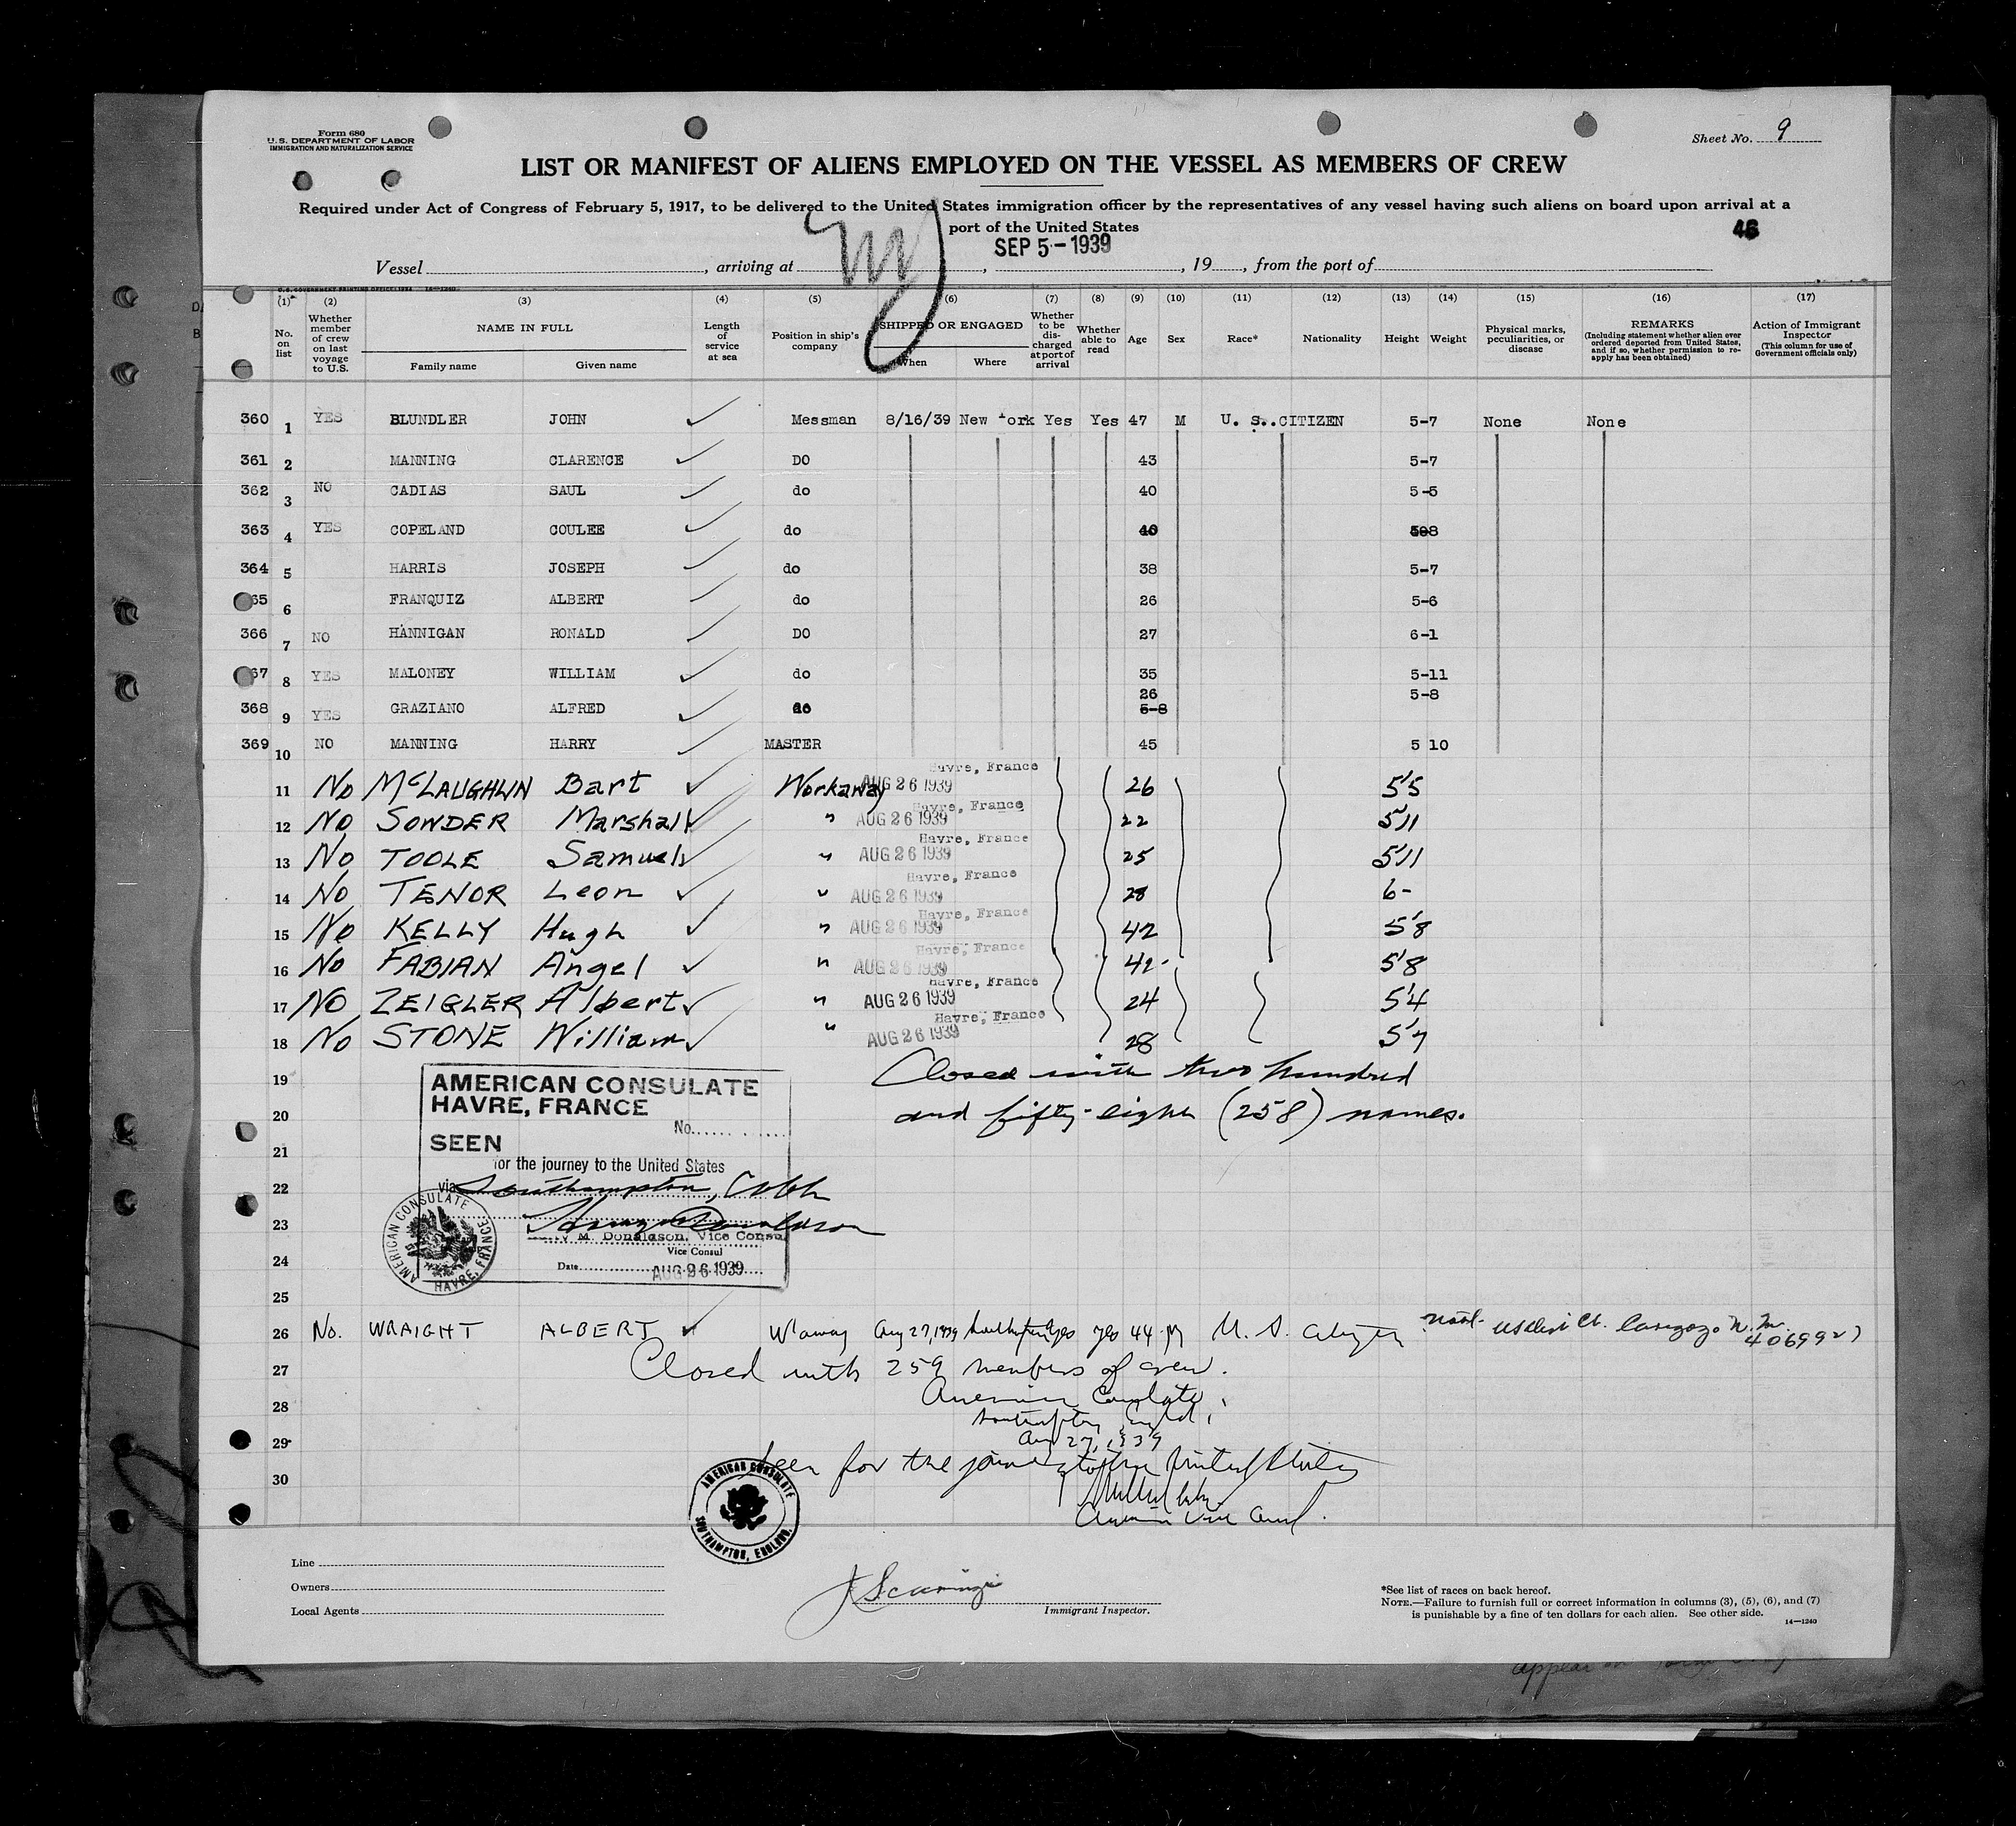 Form 680
U. S. DEPARTMENT OF LABOR
IMMIGRATION AND NATURALIZATION SERVICE
Sheet No. 9
LIST OR MANIFEST OF ALIENS EMPLOYED ON THE VESSEL AS MEMBERS OF CREW
Required under Act of Congress of February 5, 1917, to be delivered to the United States immigration officer by the representatives of any vessel having such aliens on board upon arrival at a
port of the United States
46
SEP 5 - 1939
Vessel , arriving at , , 19 , from the port of
(1) (2) (3) (4) (5) (6) (7) (8) (9) (10) (11) (12) (13) (14) (15) (16) (17)
No. on list
Whether member of crew on last voyage to U.S.
NAME IN FULL
Family name Given name
Length of service at sea
Position in ship's company
SHIPPED OR ENGAGED
When Where
Whether to be discharged at port of arrival
Whether able to read
Age
Sex
Race*
Nationality
Height
Weight
Physical marks, peculiarities, or disease
REMARKS
(Including statement whether alien ever ordered deported from United States, and if so, whether permission to reapply has been obtained)
Action of Immigrant Inspector
(This column for use of Government officials only)
360 1 YES BLUNDLER JOHN ✓ Messman 8/16/39 New York Yes Yes 47 M U. S. CITIZEN 5-7 None None
361 2 MANNING CLARENCE ✓ DO 43 5-7
362 3 NO CADIAS SAUL ✓ do 40 5-5
363 4 YES COPELAND COULEE ✓ do 40 5-8
364 5 HARRIS JOSEPH ✓ do 38 5-7
65 6 FRANQUIZ ALBERT ✓ do 26 5-6
366 7 NO HANNIGAN RONALD ✓ DO 27 6-1
67 8 YES MALONEY WILLIAM ✓ do 35 5-11
368 9 YES GRAZIANO ALFRED ✓ do 26 5-8 5-8
369 10 NO MANNING HARRY ✓ MASTER 45 5 10
11 No McLAUGHLIN Bart ✓ Workaway AUG 26 1939 Havre, France 26 5'5
12 No SONDER Marshall ✓ " AUG 26 1939 Havre, France 22 5'11
13 No TOOLE Samuel ✓ " AUG 26 1939 Havre, France 25 5'11
14 No TENOR Leon ✓ " AUG 26 1939 Havre, France 28 6-
15 No KELLY Hugh ✓ " AUG 26 1939 Havre, France 42 5'8
16 No FABIAN Angel ✓ " AUG 26 1939 Havre, France 42 5'8
17 NO ZEIGLER Albert ✓ " AUG 26 1939 Havre, France 24 5'4
18 No STONE William ✓ " AUG 26 1939 Havre, France 28 5'7
19 Closed with two hundred
20 and fifty-eight (258) names.
AMERICAN CONSULATE
HAVRE, FRANCE
No.
SEEN
21
for the journey to the United States
22 via Southampton, Cobh
23
M. Donaldson, Vice Consul
Vice Consul
24 Date AUG 26 1939
AMERICAN CONSULATE HAVRE, FRANCE
25
26 No. WRAIGHT ALBERT ✓ W'away Aug 27, 1939 Southampton yes yes 44 M U. S. Citizen
N. M.
4069927
27 Closed with 259 members of crew.
28 American Consulate,
Southampton, England,
29 Aug 27, 1939
Seen for the journey to the United States
30
American Vice Consul.
AMERICAN CONSULATE SOUTHAMPTON, ENGLAND.
Line
Owners
Local Agents
Immigrant Inspector.
*See list of races on back hereof.
NOTE.—Failure to furnish full or correct information in columns (3), (5), (6), and (7)
is punishable by a fine of ten dollars for each alien. See other side.
14—1240
appear on